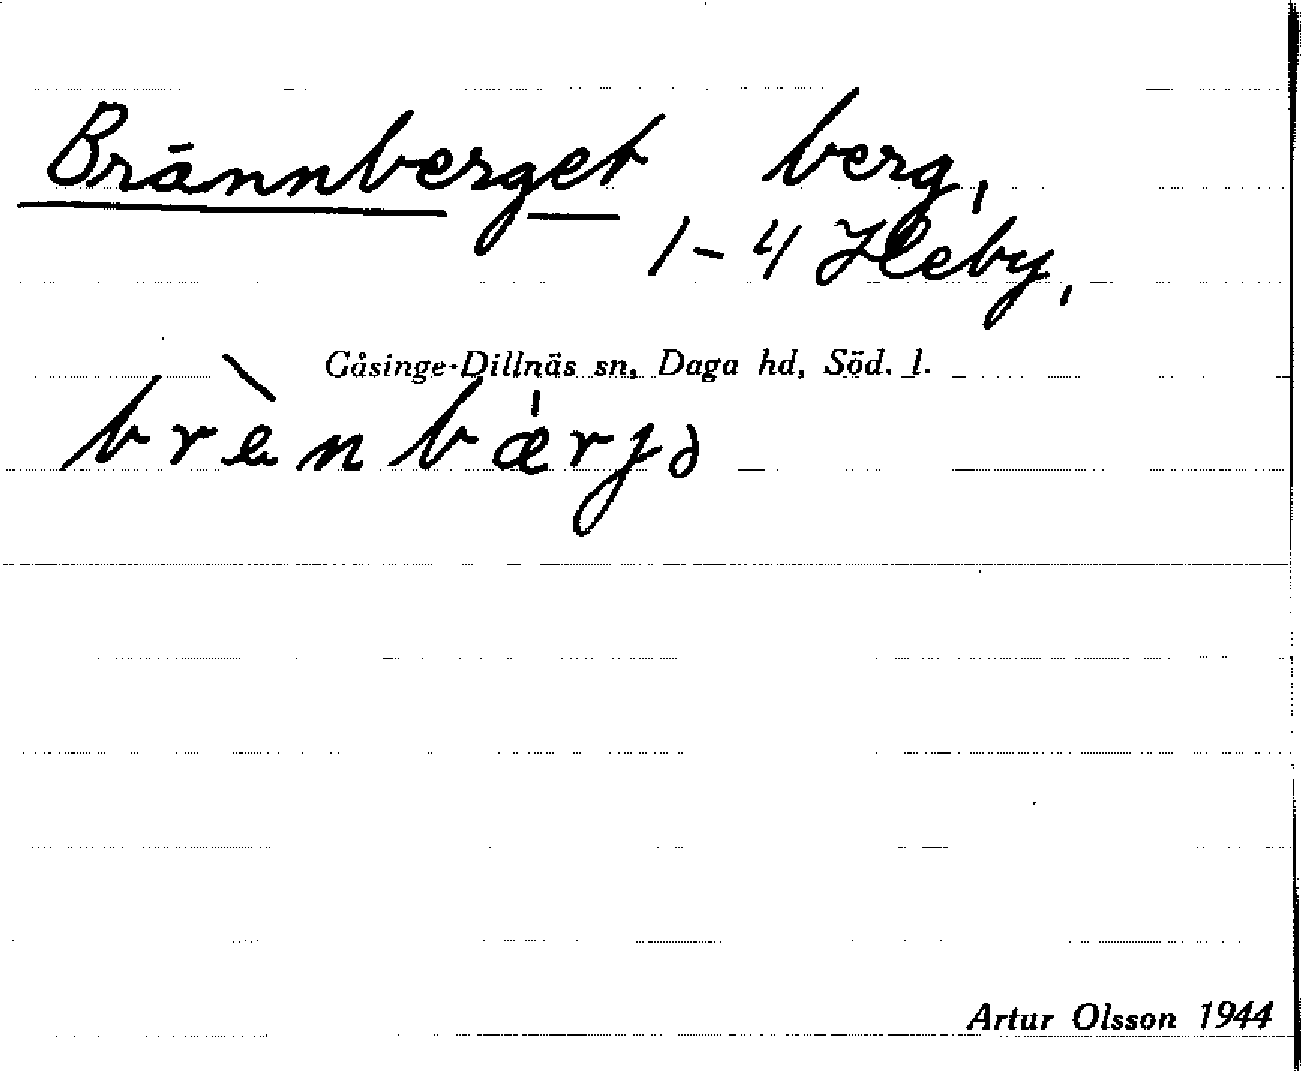 Brännberget berg,
1-4 Heby,
Gåsinge-Dillnäs sn, Daga hd, Söd. l.
brὲnbǽrjə
Artur Olsson 1944